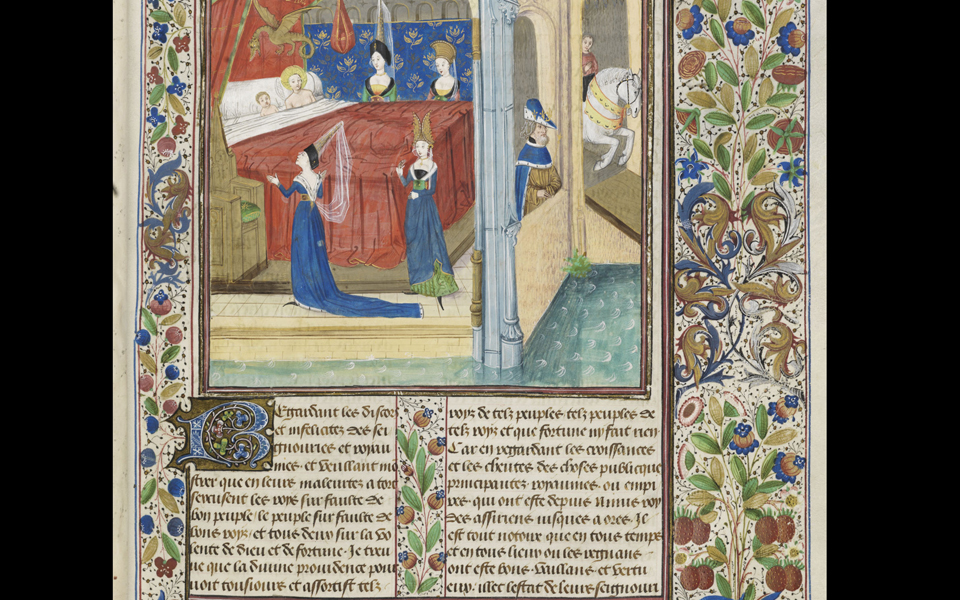 Regardant les discors
et infelicitez des sei
gnouries et royau
mes et veullant mo
strer que en leurs maleurtez a tort
sexcusent les roys sur faulte de
bon peuple le peuple sur faulte de
bons roys et tous deux sur la vo
lente de dieu et de fortune Je treu
ue que la diuine prouidence pour
uoit tousiours et assortist telz
roys de telz peuples telz peuples de
telz roys et que fortune ny fait rien
Car en regardant les croissances
et les cheutes des choses publicques
principautez royaumes ou empi
res qui ont este depuis Ninus roy
des assiriens iusques a ores Je
est tout notoire que en tous temps
et en tous lieux ou les regnans
ont este bons vaillans et vertu
eux illec lestat de leurs seignouri